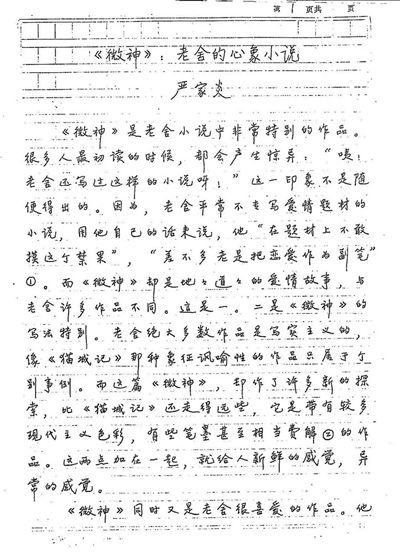 第 1 页共 页
《微神》：老舍的心象小说
严家炎
《微神》是老舍小说中非常特别的作品。
很多人最初读的时候，都会产生惊异：“咦！
老舍还写过这样的小说呀！”这一印象不是随
便得出的。因为，老舍平常不专写爱情题材的
小说，用他自己的话来说，他“在题材上不敢
摸这个禁果”，“差不多老是把恋爱作为副笔”
①。而《微神》却是地々道々的爱情故事，与
老舍许多作品不同。这是一。二是《微神》的
写法特别。老舍绝大多数作品是写实主义的，
像《猫城记》那种象征讽喻性的作品只属于个
别事例。而这篇《微神》，却作了许多新的探
索，比《猫城记》还走得远些，它是带有较多
现代主义色彩，有些笔墨甚至相当费解②的作
品。这两点加在一起，就给人新鲜的感觉，异
常的感觉。
《微神》同时又是老舍很喜爱的作品。他